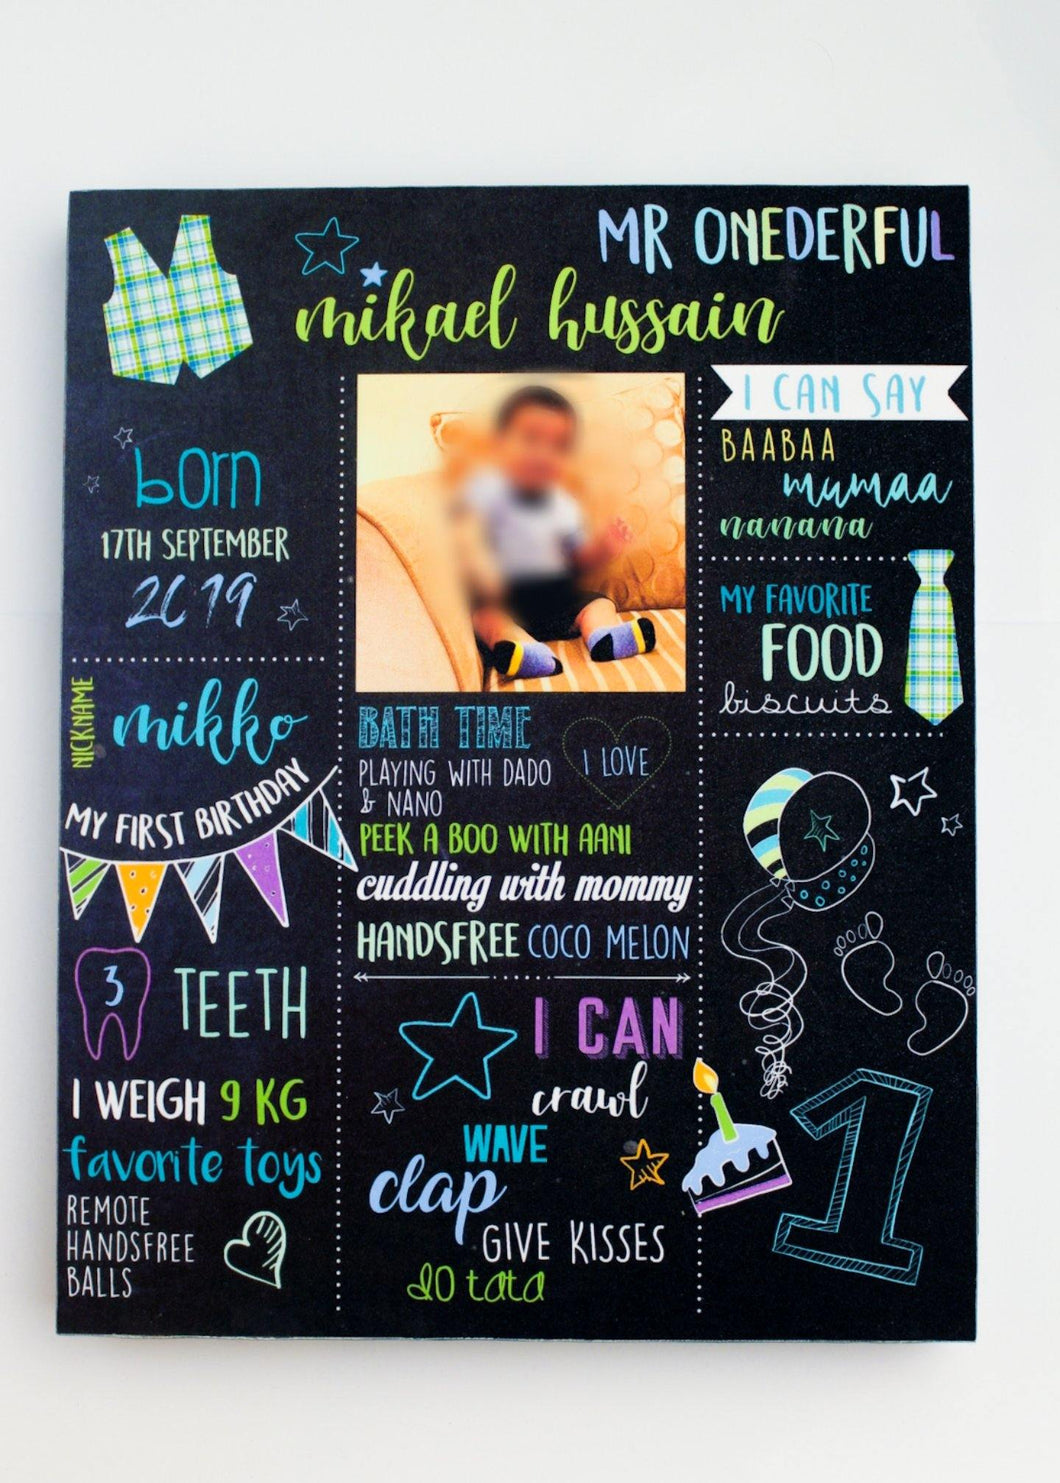 MR ONEDERFUL
mikael hussain
born
17TH SEPTEMBER
2019
NICKNAME
mikko
MY FIRST BIRTHDAY
3
TEETH
I WEIGH 9 KG
favorite toys
REMOTE
HANDSFREE
BALLS
BATH TIME
I LOVE
PLAYING WITH DADO
& NANO
PEEK A BOO WITH AANI
cuddling with mommy
HANDSFREE COCO MELON
I CAN
crawl
WAVE
clap
GIVE KISSES
dO tata
I CAN SAY
BAABAA
mumaa
nanana
MY FAVORITE
FOOD
biscuits
1